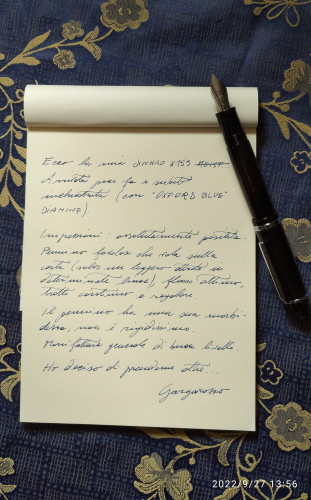 Ecco la mia JINHAO X159
Arrivata poco fa e subito
inchiostrata (con "OXFORD BLUE"
DIAMINE).
Impressioni: assolutamente positive.
Pennino favoloso che vola sulla
carta (solo un leggero attrito in
determinate linee), flusso ottimo,
tratto continuo e regolare.
Il pennino ha una sua morbi-
dezza, non è rigidissimo.
Manifattura generale di buon livello
Ho deciso di prenderne altre...
Gargarozzo
2022/9/27 13:56